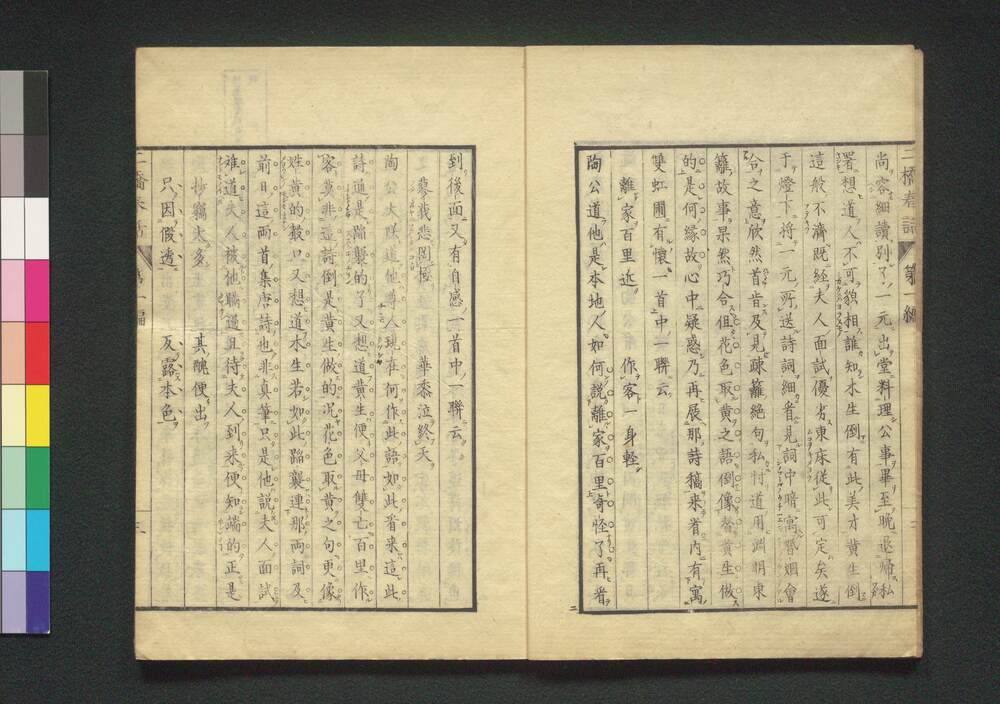 尚容細讀別了一元出堂料理公事畢至晚退歸私
署想道人不可貌相誰知水生倒有此美才黃生倒
這般不濟既經夫人面試優劣東床從此可定矣遂
于燈下將一元所送詩詞細看見詞中暗寓婚姻會
合之意欣然首肯及見疎籬絕句私忖道用淵明東
籬故事果然巧合但花色取黃之語倒像替黃生做
的是何緣故心中疑惑乃再展那詩稿來看內有寓
雙虹圃有懷一首中一聯云
離家百里近 作客一身輕
陶公道他是本地人如何說離家百里奇怪了再看
到後面又有自感一首中一聯云
蓼莪悲罔極 華黍泣終天
陶公大駭道他尊人現在何作此語如此看來這些
詩通是蹈襲的了又想道黃生便父母雙亡百里作
客莫非這詩倒是黃生做的況花色取黃之句更像
姓黃的聲口又想道木生若如此蹈襲連那兩詞及
前日這兩首集唐詩也非真筆只是他說夫人面試
難道夫人被他瞞過且待夫人到來便知端的正是
抄竊太多 其醜便出
只因假透 反露本色
二橋春話 第一編